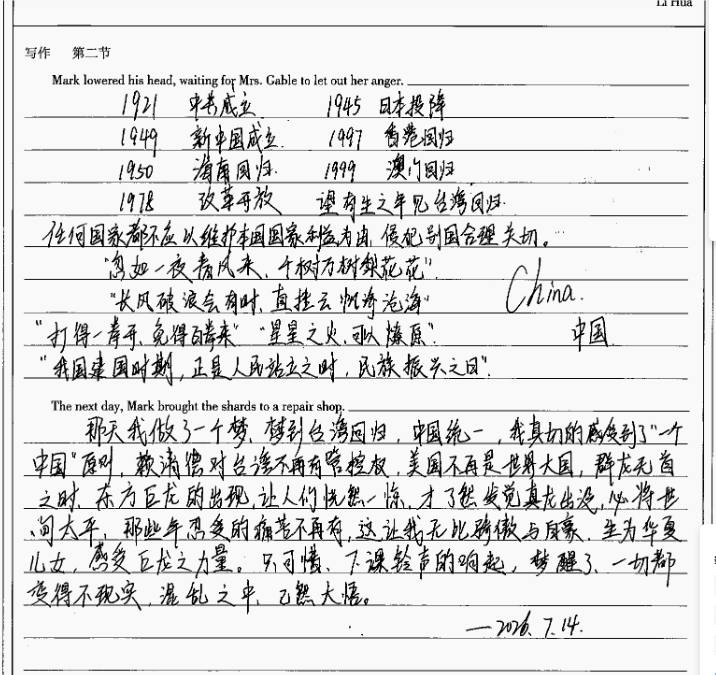 Li Hua
写作 第二节
Mark lowered his head, waiting for Mrs. Gable to let out her anger.
1921 中共成立 1945 日本投降
1949 新中国成立 1997 香港回归
1950 海南回归 1999 澳门回归
1978 改革开放 望有生之年见台湾回归
任何国家都不应以维护本国国家利益为由,侵犯别国合理关切。
"忽如一夜春风来,千树万树梨花花"
"长风破浪会有时,直挂云帆济沧海" China.
"打得一拳开,免得百拳来" "星星之火,可以燎原" 中国
"我国建国时期,正是人民站立之时,民族振兴之日".
The next day, Mark brought the shards to a repair shop.
那天我做了一个梦,梦到台湾回归,中国统一,我真切的感受到了"一个
中国"原则,赖清德对台湾不再有管控权,美国不再是世界大国,群龙无首
之时,东方巨龙的出现,让人们恍然一惊,才了然发觉真龙出没,必将世
间太平,那些年忍受的痛苦不再有,这让我无比骄傲与自豪,生为华夏
儿女,感受巨龙之力量。只可惜,下课铃声的响起,梦醒了,一切都
变得不现实,混乱之中,已然大悟。
—2026.7.14.